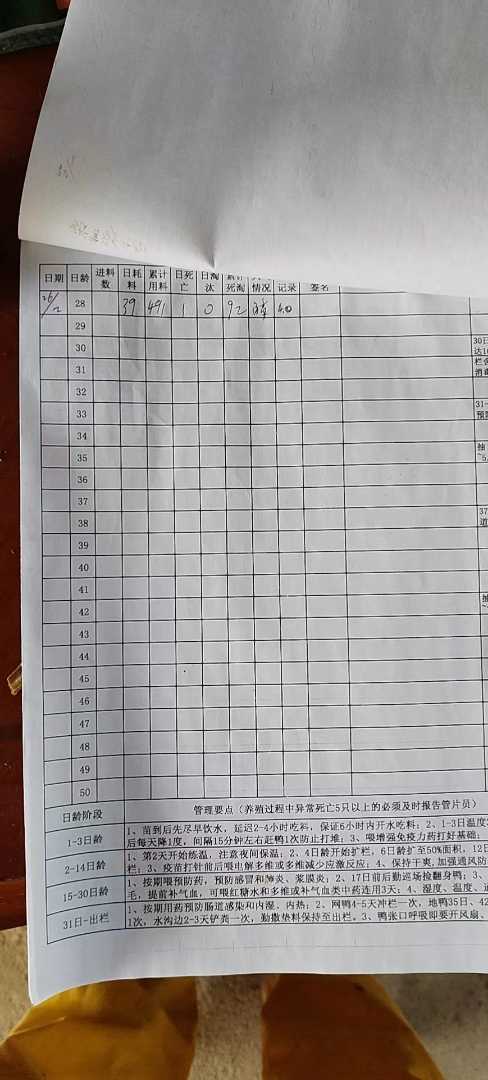 日期 日龄 进料数 日耗料 累计用料 日死亡 日淘汰 死淘 情况 记录 签名
26/2 28 39 491 1 0 92
29
30 30日
31
32
33 31-
34
35 抽
36
37
38 37
39
40
41
42 抽
43
44
45
46
47
48
49
50
日龄阶段 管理要点（养殖过程中异常死亡5只以上的必须及时报告管片员）
1-3日龄 1、苗到后先尽早饮水，延迟2-4小时吃料，保证6小时内开水吃料；2、1-3日温度
后每天降1度，间隔15分钟左右赶鸭1次防止打堆；3、吸增强免疫力药打好基础；
2-14日龄 1、第2天开始炼温，注意夜间保温；2、4日龄开始扩栏，6日龄扩至50%面积，12日
栏；3、疫苗打针前后吸电解多维或多维减少应激反应；4、保持干爽,加强通风防
15-30日龄 1、按期吸预防药，预防感冒和肺炎、浆膜炎；2、17日前后勤巡场捡翻身鸭；3、
毛，提前补气血，可吸红糖水和多维或补气血类中药连用3天；4、湿度、温度、通
31日-出栏 1、按期用药预防肠道感染和内湿、内热；2、网鸭4-5天冲栏一次，地鸭35日、42
1次，水沟边2-3天铲粪一次，勤撒垫料保持至出栏。3、鸭张口呼吸即要开风扇、